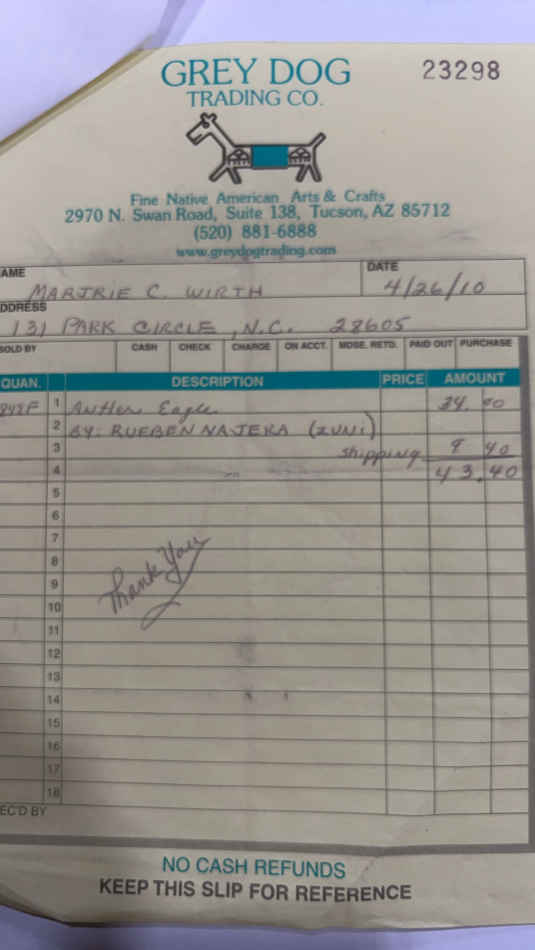 GREY DOG
23298
TRADING CO.
Fine Native American Arts & Crafts
2970 N. Swan Road, Suite 138, Tucson, AZ 85712
(520) 881-6888
www.greydogtrading.com
AME
DATE
MARJRIE C. WIRTH
4/26/10
DDRESS
131 PARK CIRCLE, N.C. 28605
SOLD BY CASH CHECK CHARGE ON ACCT. MDSE. RETD. PAID OUT PURCHASE
QUAN. DESCRIPTION PRICE AMOUNT
1 Antler Eagle 34.
2 BY: RUEBEN NAJERA (ZUNI)
3 shipping 9 40
4 43.40
5
6
7
8
Thank You
9
10
11
12
13
14
15
16
17
18
EC'D BY
NO CASH REFUNDS
KEEP THIS SLIP FOR REFERENCE